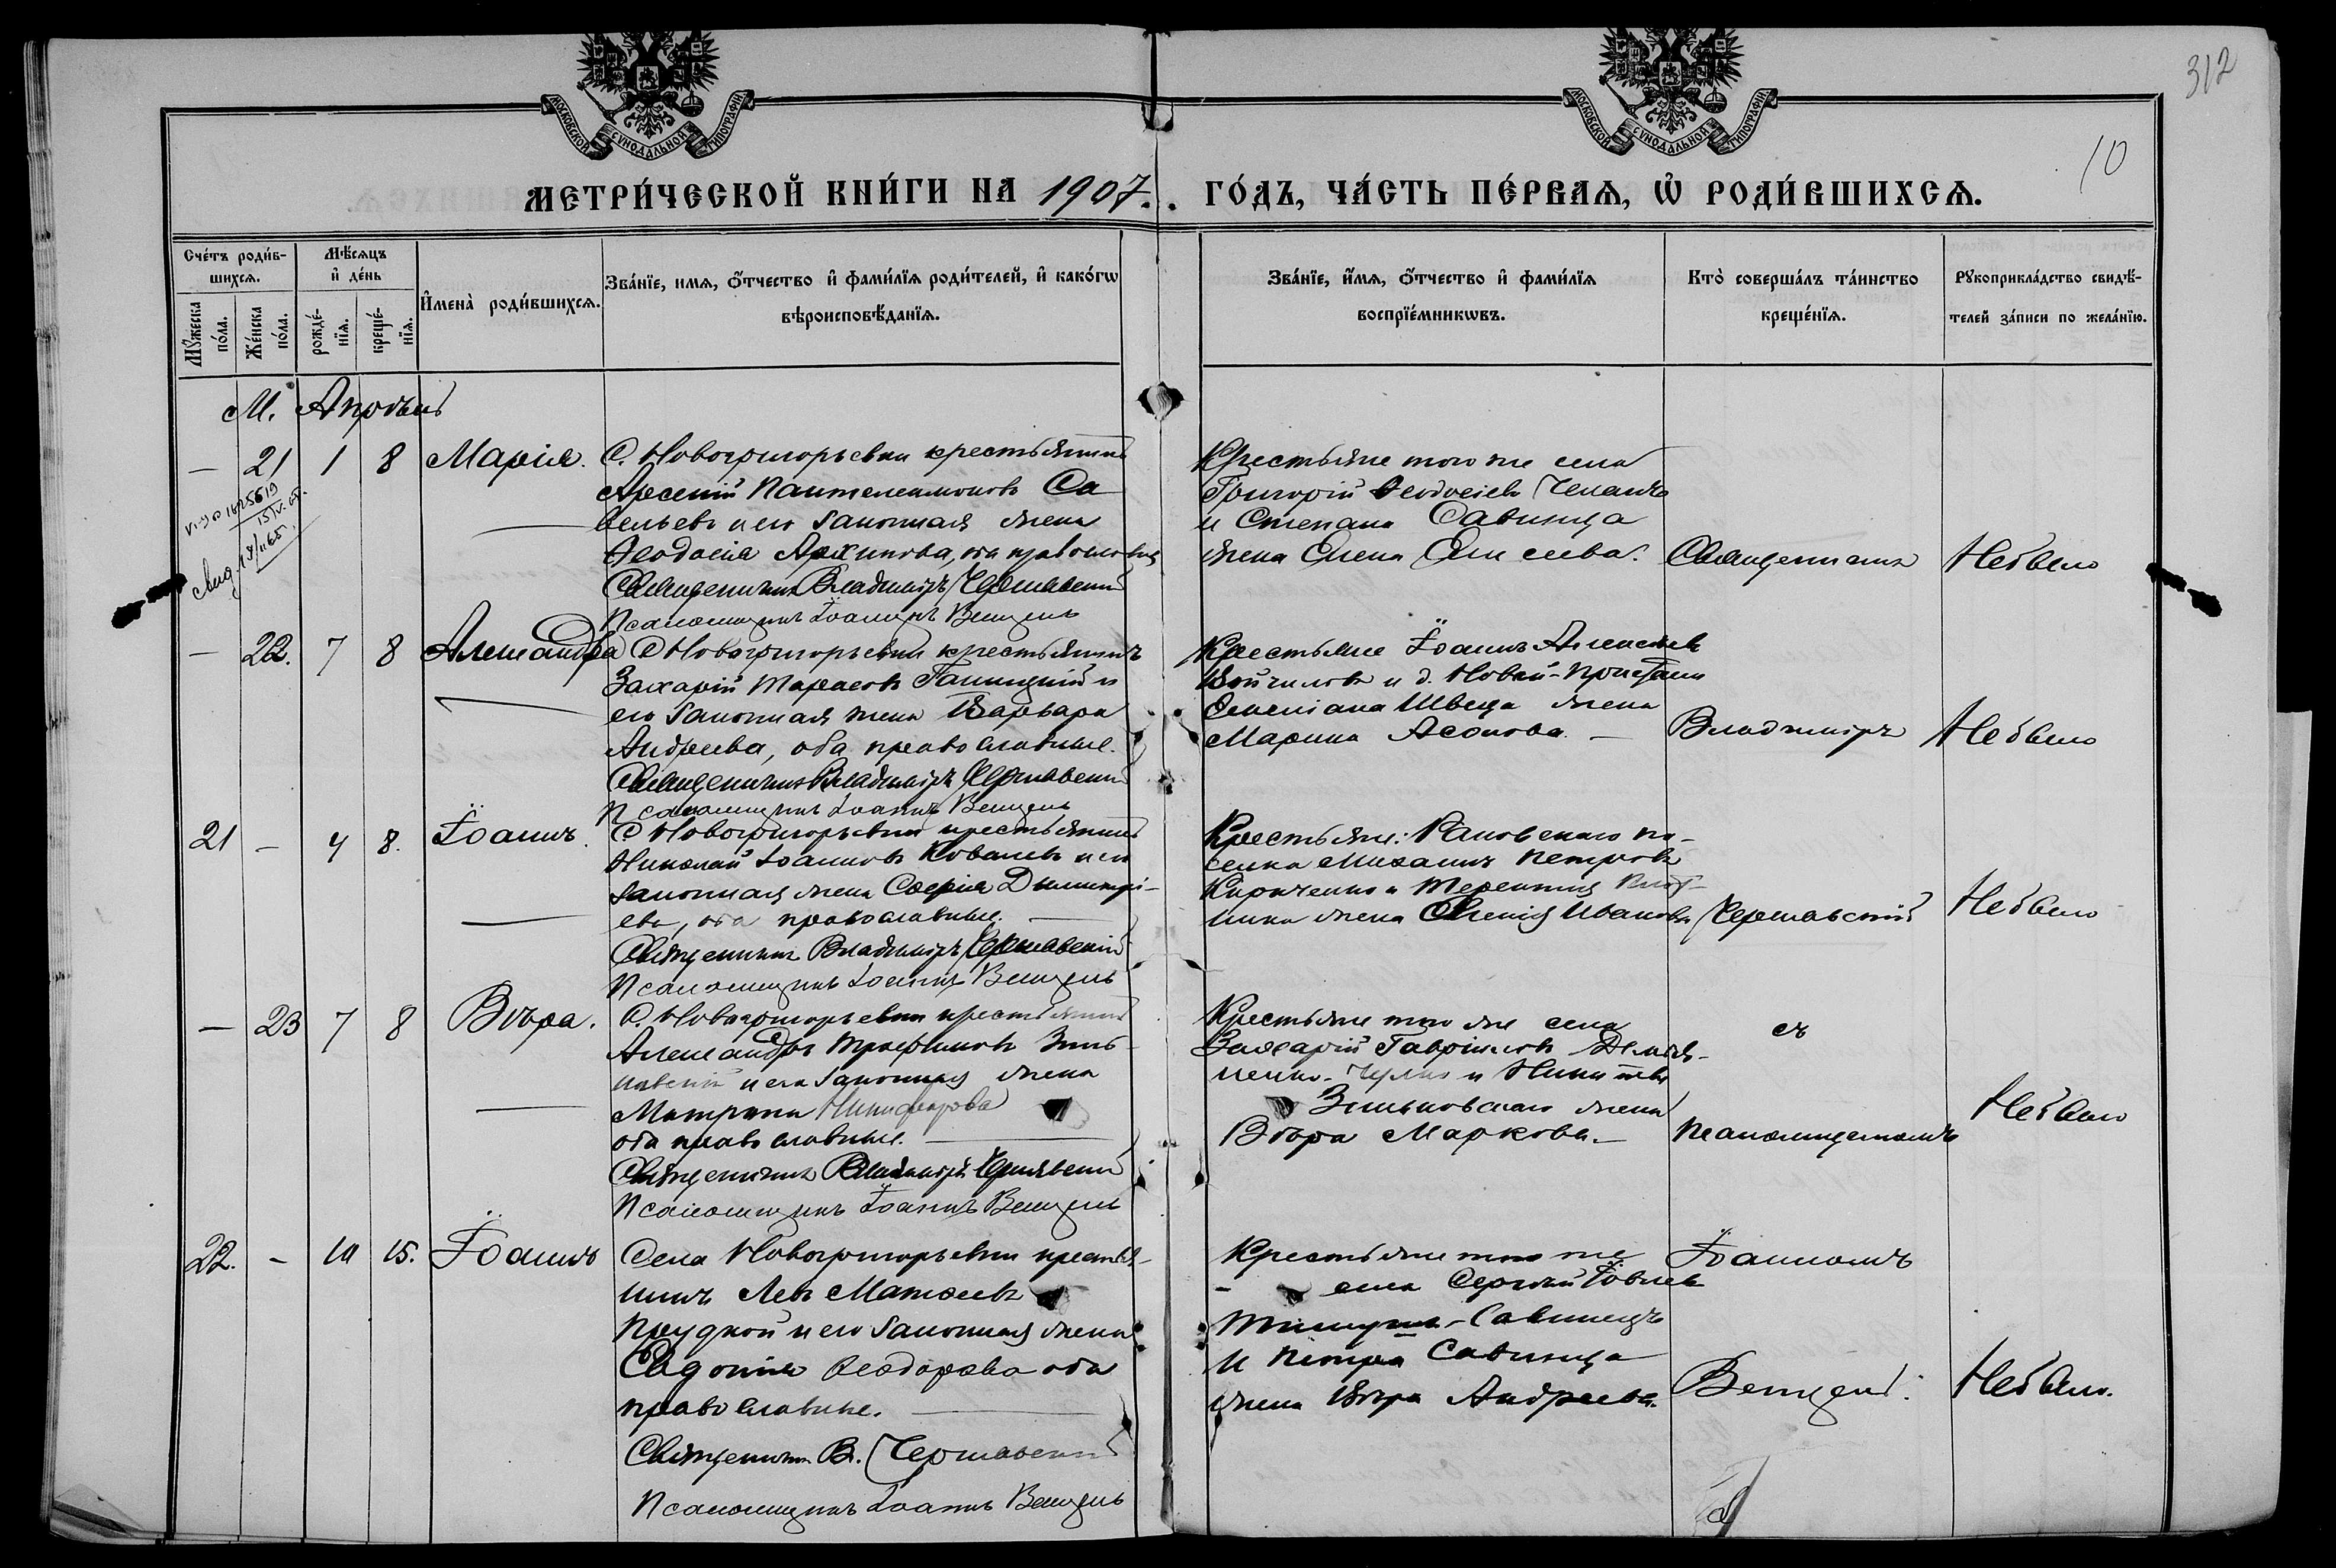 312
10
МОСКОВСКОЙ СѴНОДАЛЬНОЙ ТИПОГРАФІИ
МОСКОВСКОЙ СѴНОДАЛЬНОЙ ТИПОГРАФІИ
МЕТРИ́ЧЕСКОЙ КНИ́ГИ НА 1907. ГО́ДЪ, ЧА́СТЬ ПЕ́РВАѦ, Ѡ҆ РОДИ́ВШИХСѦ.
Сче́тъ роди́в-
шихсѧ.
Мѣ́сѧцъ
и҆ де́нь
Мꙋ́жеска
по́ла.
Же́нска
по́ла.
рожде́-
нїѧ.
креще́-
нїѧ.
И҆мена̀ роди́вшихсѧ.
Зва́нїе, имѧ, ѻ҆́тчество и҆ фами́лїѧ роди́телей, и҆ како́гѡ
вѣроисповѣ́данїѧ.
Зва́нїе, и҆́мѧ, ѻ҆́тчество и҆ фами́лїѧ
воспрїе́мникѡвъ.
Кто̀ соверша́лъ та́инство
креще́нїѧ.
Рꙋкоприкла́дство свидѣ́-
телей за́писи по жела́нїю.
М. Апрѣль
— 21 1 8 Марія.
С. Новогригорьевки крестьянинъ
Арсеній Пантелеимоновъ Са
вельевъ и его законная жена
Ѳеодосія Архипова, оба православные
Священникъ Владиміръ Чернявскій
Псаломщикъ Іоаннъ Венцель
Крестьяне того же села
Григорій Ѳеодосіевъ
и Степана Савинца
жена Елена Елисеева.
Священникъ
Не было
— 22. 7 8 Александра
С Новогригорьевки крестьянинъ
Захарій Тарасовъ Галицкій и
его законная жена Варвара
Андреева, оба православные.
Священникъ Владиміръ Чернявскій
Псаломщикъ Іоаннъ Венцель
Крестьяне Іоаннъ Алексѣевъ
Войчиловъ и д. Новой-Пристани
Швеца жена
Марина
Владиміръ
Не было
21 — 4 8. Іоаннъ.
С Новогригорьевки крестьянинъ
Николай Іоанновъ Ковалевъ и его
законная жена Софія Димитрі-
ева, оба православные.
Священникъ Владиміръ Чернявскій
Псаломщикъ Іоаннъ Венцель
Крестьяне: Раковскаго по-
селка Михаилъ Петровъ
Кириченко и Терентія
жена Ивановна
Чернявскій
Не было
— 23 7 8 Вѣра.
С. Новогригорьевки крестьянинъ
Александръ Трофимовъ Зинь-
ковскій и его законная жена
Матрона Никифорова
оба православные.
Священникъ Владиміръ Чернявскій
Псаломщикъ Іоаннъ Венцель
Крестьяне того же села
Захарій Гавріиловъ Демья-
ненко- и Никиты
Зиньковскаго жена
Вѣра Маркова.
съ
псаломщикомъ
Не было
22. — 10 15. Іоаннъ
Села Новогригорьевки крестья-
нинъ Левъ Матѳеевъ
Прудкой и его законная жена
Евдокія Ѳеодорова оба
православные.
Священникъ В. Чернявскій
Псаломщикъ Іоаннъ Венцель
Крестьяне того же
села Сергѣй Іовлевъ
-Савинецъ
и Петра Савинца
жена Вѣра Андреева.
Іоанномъ
Венцель.
Не было.